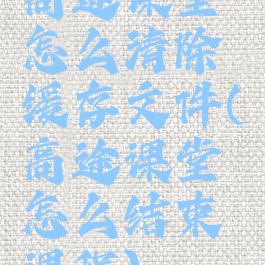 高途课堂
怎么清除
缓存文件(
高途课堂
怎么结束
课程)